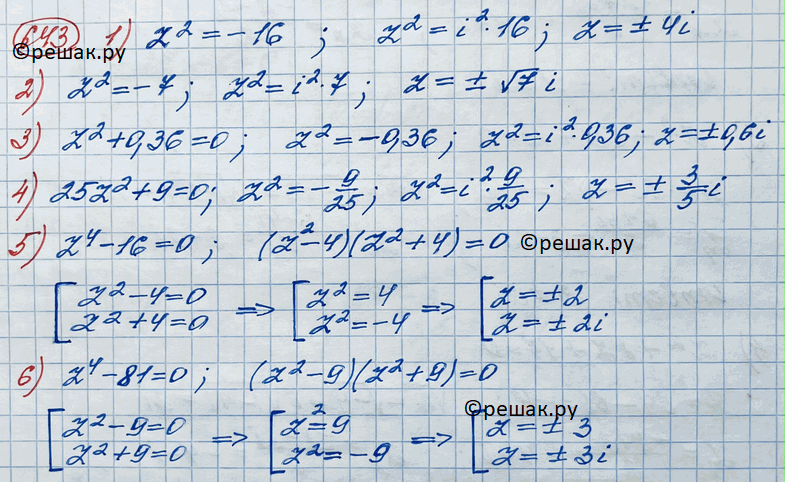 643 1) z² = -16 ; z² = i²·16 ; z = ± 4i
©решак.ру
2) z² = -7 ; z² = i²·7 ; z = ± √7 i
3) z² + 0,36 = 0 ; z² = -0,36 ; z² = i²·0,36 ; z = ±0,6i
4) 25z² + 9 = 0 ; z² = -9/25 ; z² = i²·9/25 ; z = ± 3/5 i
5) z⁴ - 16 = 0 ; (z² - 4)(z² + 4) = 0 ©решак.ру
[ z² - 4 = 0 => [ z² = 4 => [ z = ± 2
z² + 4 = 0 z² = -4 z = ± 2i
6) z⁴ - 81 = 0 ; (z² - 9)(z² + 9) = 0
©решак.ру
[ z² - 9 = 0 => [ z² = 9 => [ z = ± 3
z² + 9 = 0 z² = -9 z = ± 3i